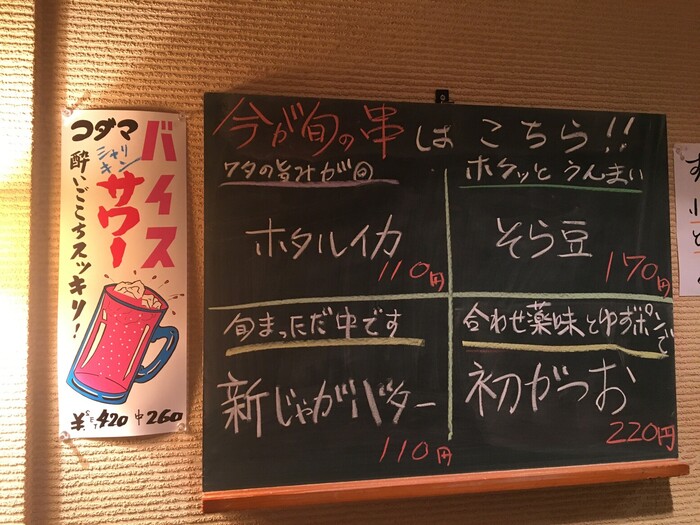 コダマ
バイス
サワー
シャリキン
酔いごこちスッキリ!
¥SET420 中260
今が旬の串はこちら!!
ワタの旨みが◎
ホタルイカ
110円
ホクッとうんまい
そら豆
170円
旬まっただ中です
新じゃがバター
110円
合わせ薬味とゆずポンで
初がつお
220円